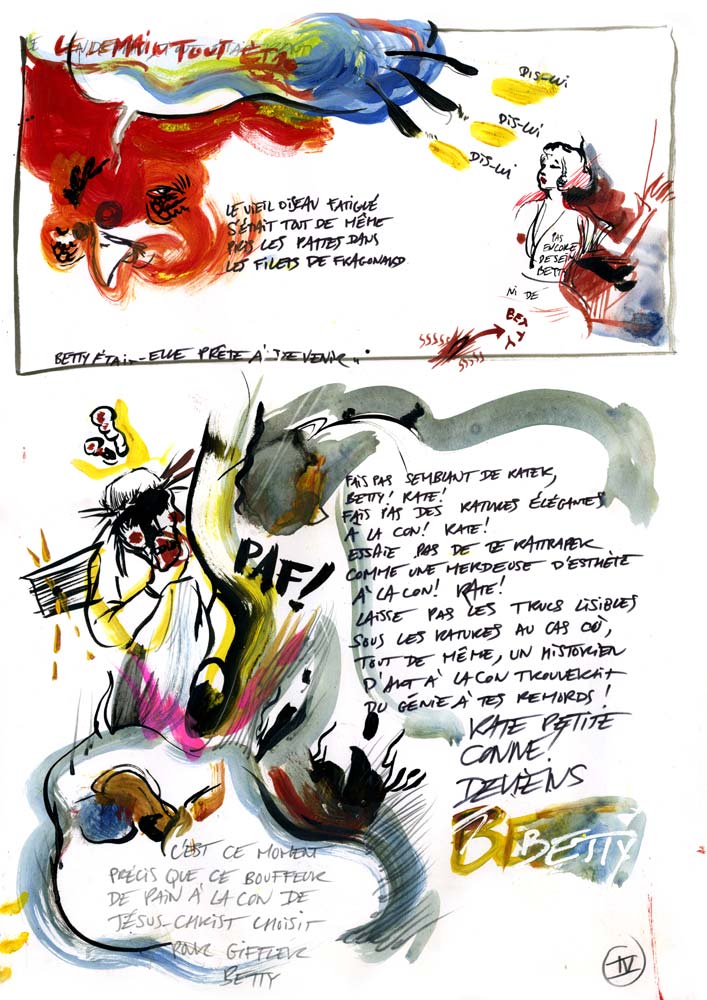 LENDEMAIN TOUT
DIS-LUI
DIS-LUI
DIS-LUI
LE VIEIL OISEAU FATIGUÉ
S'ÉTAIT TOUT DE MÊME
PRIS LES PATTES DANS
LES FILETS DE FRAGONARD
PAS
ENCORE
DE SEIN
BETTY
NI DE
BETTY
SSSSS
SSSSS
BETTY ÉTAIT-ELLE PRÊTE À DEVENIR...
PAF!
FAIS PAS SEMBLANT DE RATER,
BETTY! RATE!
FAIS PAS DES RATURES ÉLÉGANTES
À LA CON! RATE!
ESSAIE PAS DE TE RATTRAPER
COMME UNE MERDEUSE D'ESTHÈTE
À LA CON! RATE!
LAISSE PAS LES TRUCS LISIBLES
SOUS LES RATURES AU CAS OÙ,
TOUT DE MÊME, UN HISTORIEN
D'ART À LA CON TROUVERAIT
DU GÉNIE À TES REMORDS!
RATE PETITE
CONNE.
DEVIENS
BE BETTY
C'EST CE MOMENT
PRÉCIS QUE CE BOUFFEUR
DE PAIN À LA CON DE
JÉSUS-CHRIST CHOISIT
POUR GIFFLER
BETTY
IV